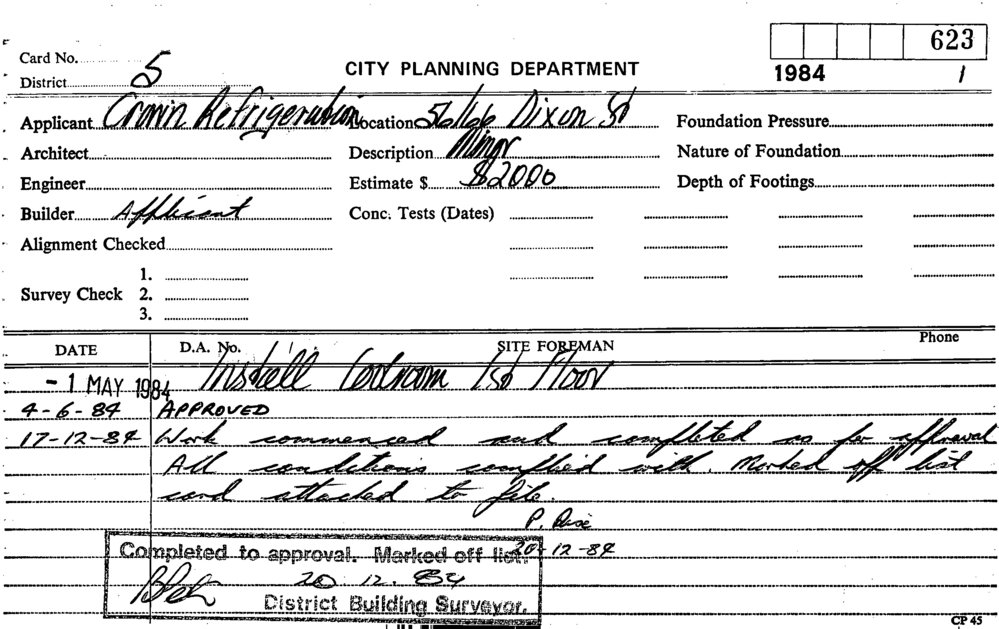 623
Card No.
CITY PLANNING DEPARTMENT
1984 1
District 5
Applicant Crown Refrigeration Location 56/66 Dixon St Foundation Pressure
Architect Description Minor Nature of Foundation
Engineer Estimate $ $2000 Depth of Footings
Builder Applicant Conc. Tests (Dates)
Alignment Checked
1.
Survey Check 2.
3.
DATE D.A. No. SITE FOREMAN Phone
- 1 MAY 1984 Instell Coolroom 1st Floor
4-6-84 APPROVED
17-12-84 Work commenced and completed as per approval
All conditions complied with. Marked off list
card attached to file.
P.
20-12-84
Completed to approval. Marked off list.
20 12. 84
District Building Surveyor.
CP 45